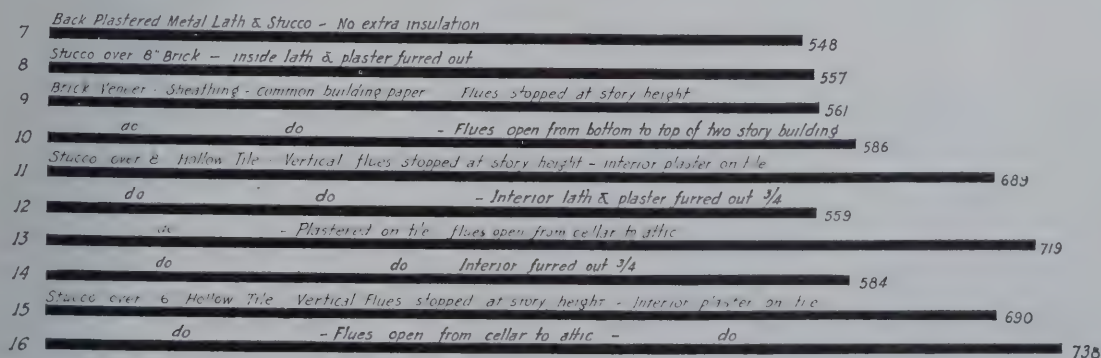 Back Plastered Metal Lath & Stucco - No extra insulation
7 548
Stucco over 8" Brick - inside lath & plaster furred out
8 557
Brick Veneer - Sheathing - common building paper Flues stopped at story height
9 561
do do - Flues open from bottom to top of two story building
10 586
Stucco over 8 Hollow Tile - Vertical flues stopped at story height - interior plaster on tile
11 689
do do - Interior lath & plaster furred out 3/4
12 559
do - Plastered on tile flues open from cellar to attic
13 719
do do Interior furred out 3/4
14 584
Stucco over 6 Hollow Tile Vertical Flues stopped at story height - Interior plaster on tile
15 690
do - Flues open from cellar to attic - do
16 738